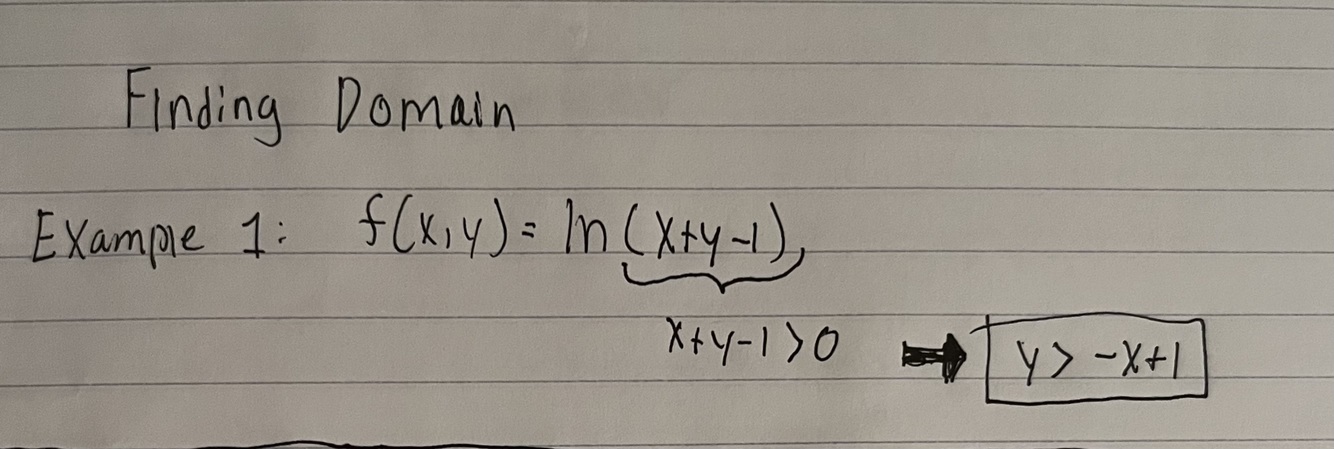 Finding Domain
Example 1: f(x,y) = ln(x+y-1),
x+y-1>0 ➡ y > -x+1